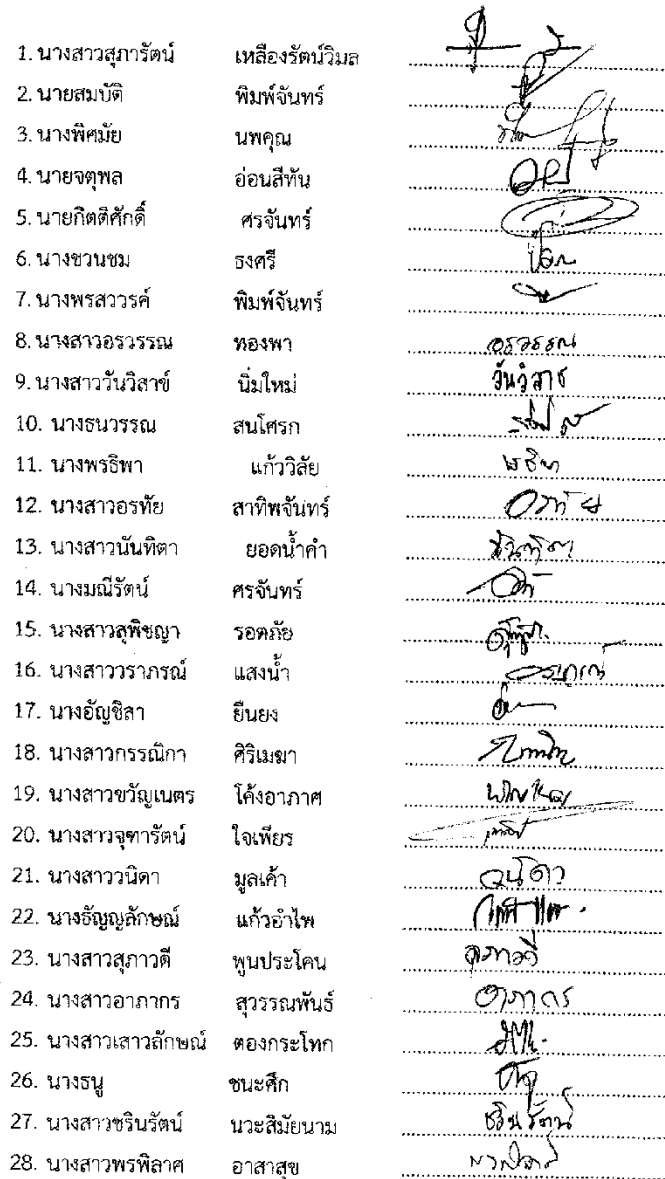 1. นางสาวสุภารัตน์ เหลืองรัตน์วิมล
2. นายสมบัติ พิมพ์จันทร์
3. นางพิศมัย นพคุณ
4. นายจตุพล อ่อนสีทัน
5. นายกิตติศักดิ์ ศรจันทร์
6. นางชวนชม ธงศรี
7. นางพรสววรค์ พิมพ์จันทร์
8. นางสาวอรวรรณ ทองพา อรวรรณ
9. นางสาววันวิสาข์ นิ่มใหม่ วันวิสาข์
10. นางธนวรรณ สนโศรก
11. นางพรธิพา แก้ววิลัย
12. นางสาวอรทัย สาทิพจันทร์ อรทัย
13. นางสาวนันทิตา ยอดน้ำคำ นันทิตา
14. นางมณีรัตน์ ศรจันทร์
15. นางสาวสุพิชญา รอตภัย
16. นางสาววราภรณ์ แสงน้ำ
17. นางอัญชิสา ยืนยง
18. นางสาวกรรณิกา ศิริเมฆา
19. นางสาวขวัญเนตร โค้งอาภาศ
20. นางสาวจุฑารัตน์ ใจเพียร
21. นางสาววนิดา มูลเค้า วนิดา
22. นางธัญญลักษณ์ แก้วอำไพ
23. นางสาวสุภาวดี พูนประโคน สุภาวดี
24. นางสาวอาภากร สุวรรณพันธ์ อาภากร
25. นางสาวเสาวลักษณ์ ตองกระโทก
26. นางธนู ชนะศึก
27. นางสาวชรินรัตน์ นวะสิมัยนาม ชรินรัตน์
28. นางสาวพรพิลาศ อาสาสุข